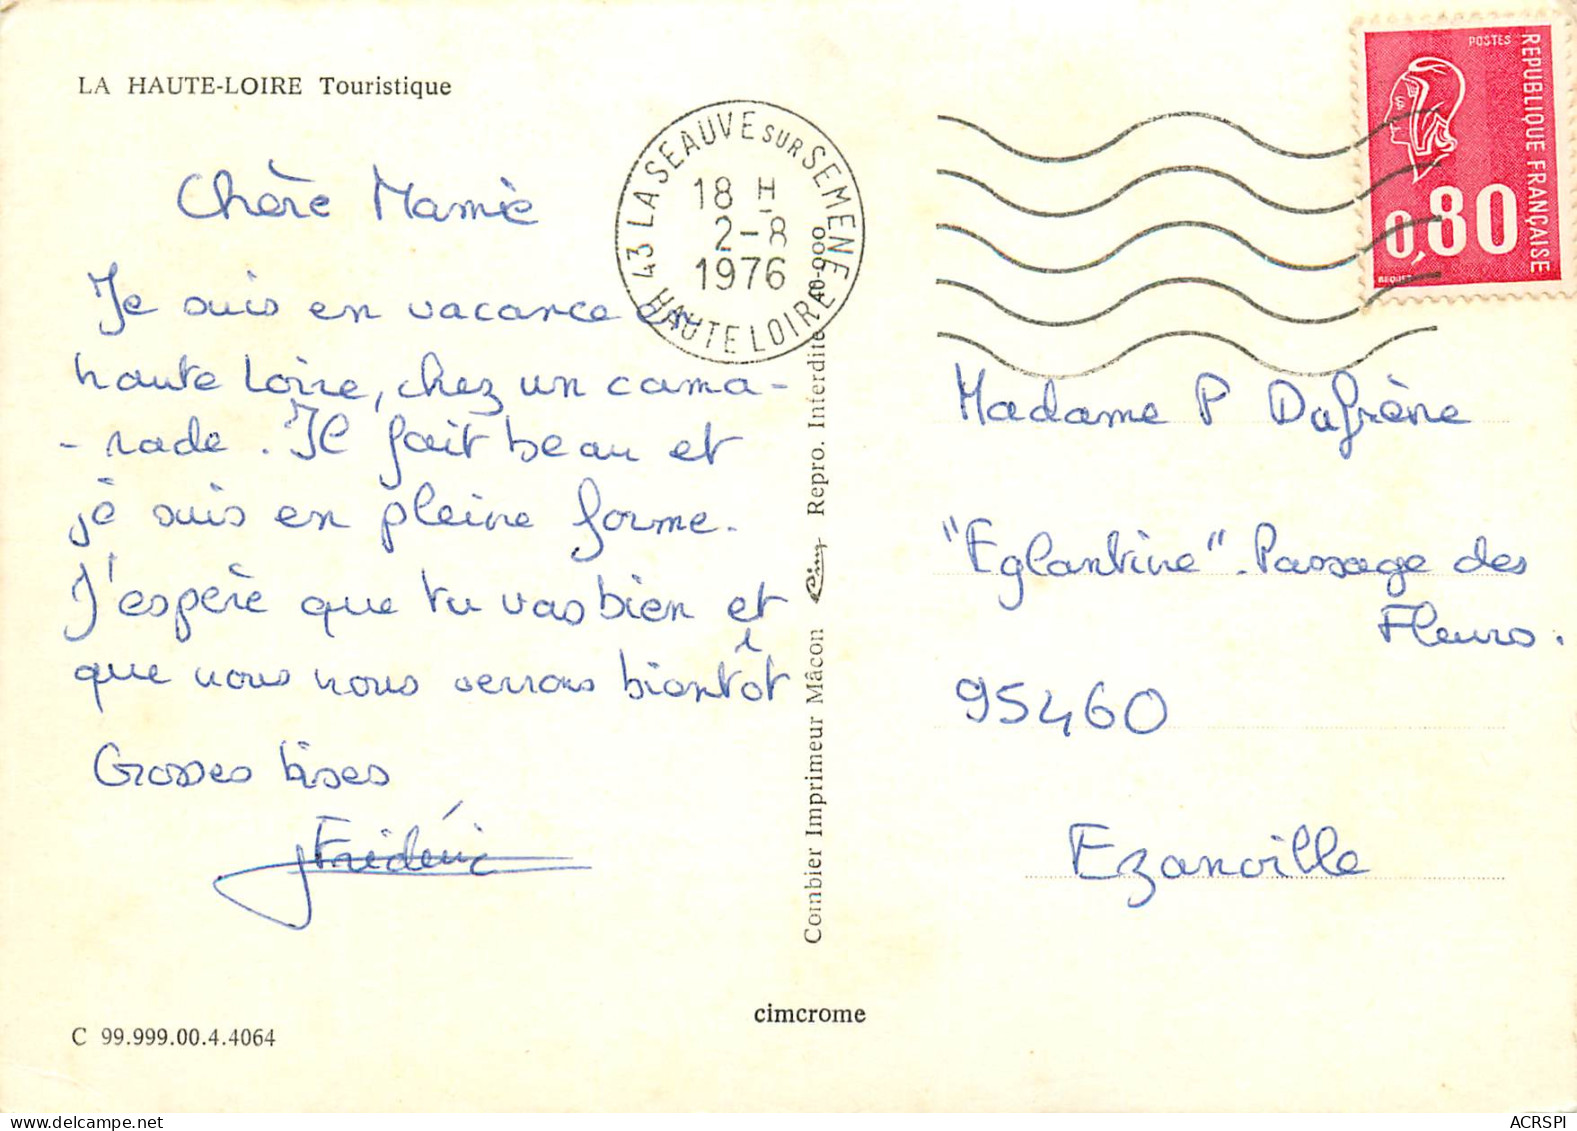 LA HAUTE-LOIRE Touristique
Chère Mamie
Je suis en vacance en
haute Loire, chez un cama-
-rade. Il fait beau et
je suis en pleine forme.
J'espère que tu vas bien et
que nous nous verrons bientôt
Grosses bises
Frédéric
C 99.999.00.4.4064
43 LA SEAUVE SUR SEMENE
18 H
2-8
1976
HAUTE LOIRE
Combier Imprimeur Mâcon Cim Repro. Interdite 40-900
cimcrome
POSTES
REPUBLIQUE FRANÇAISE
0,80
BEQUET
Madame P Dufrène
"Eglantine". Passage des
Fleurs.
95460
Ezanville
ACRSPI